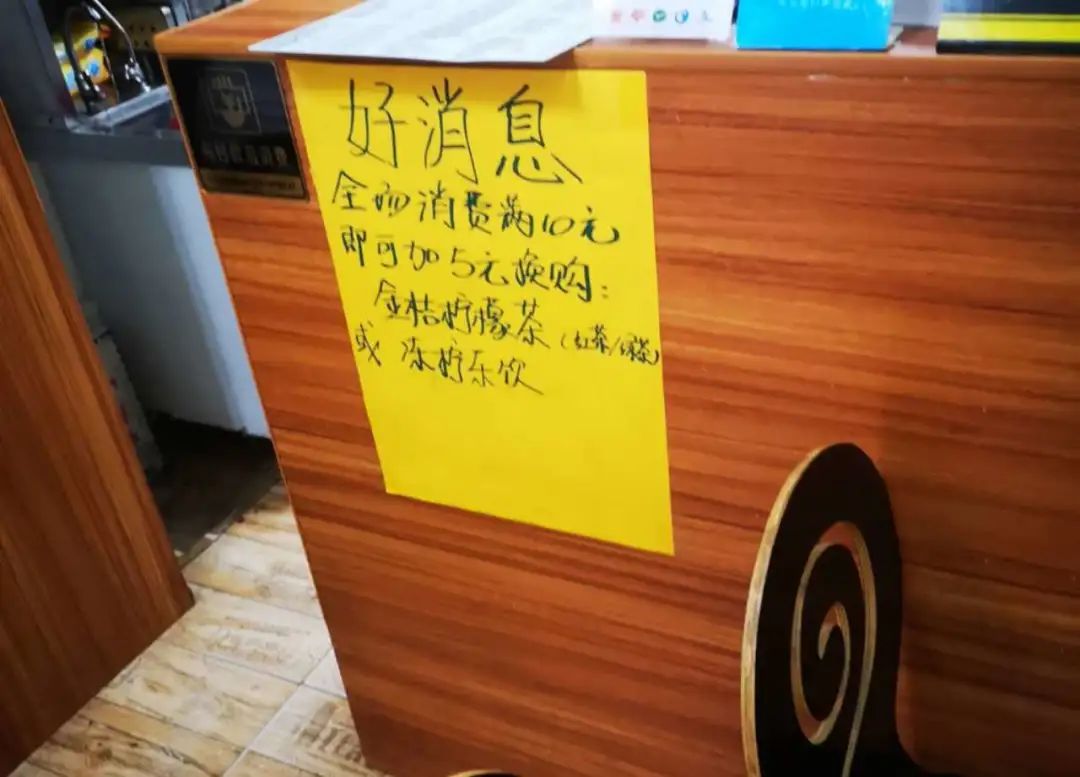 好消息
全场消费满10元
即可加5元换购:
金桔柠檬茶(红茶/绿茶)
或 冻柠乐饮